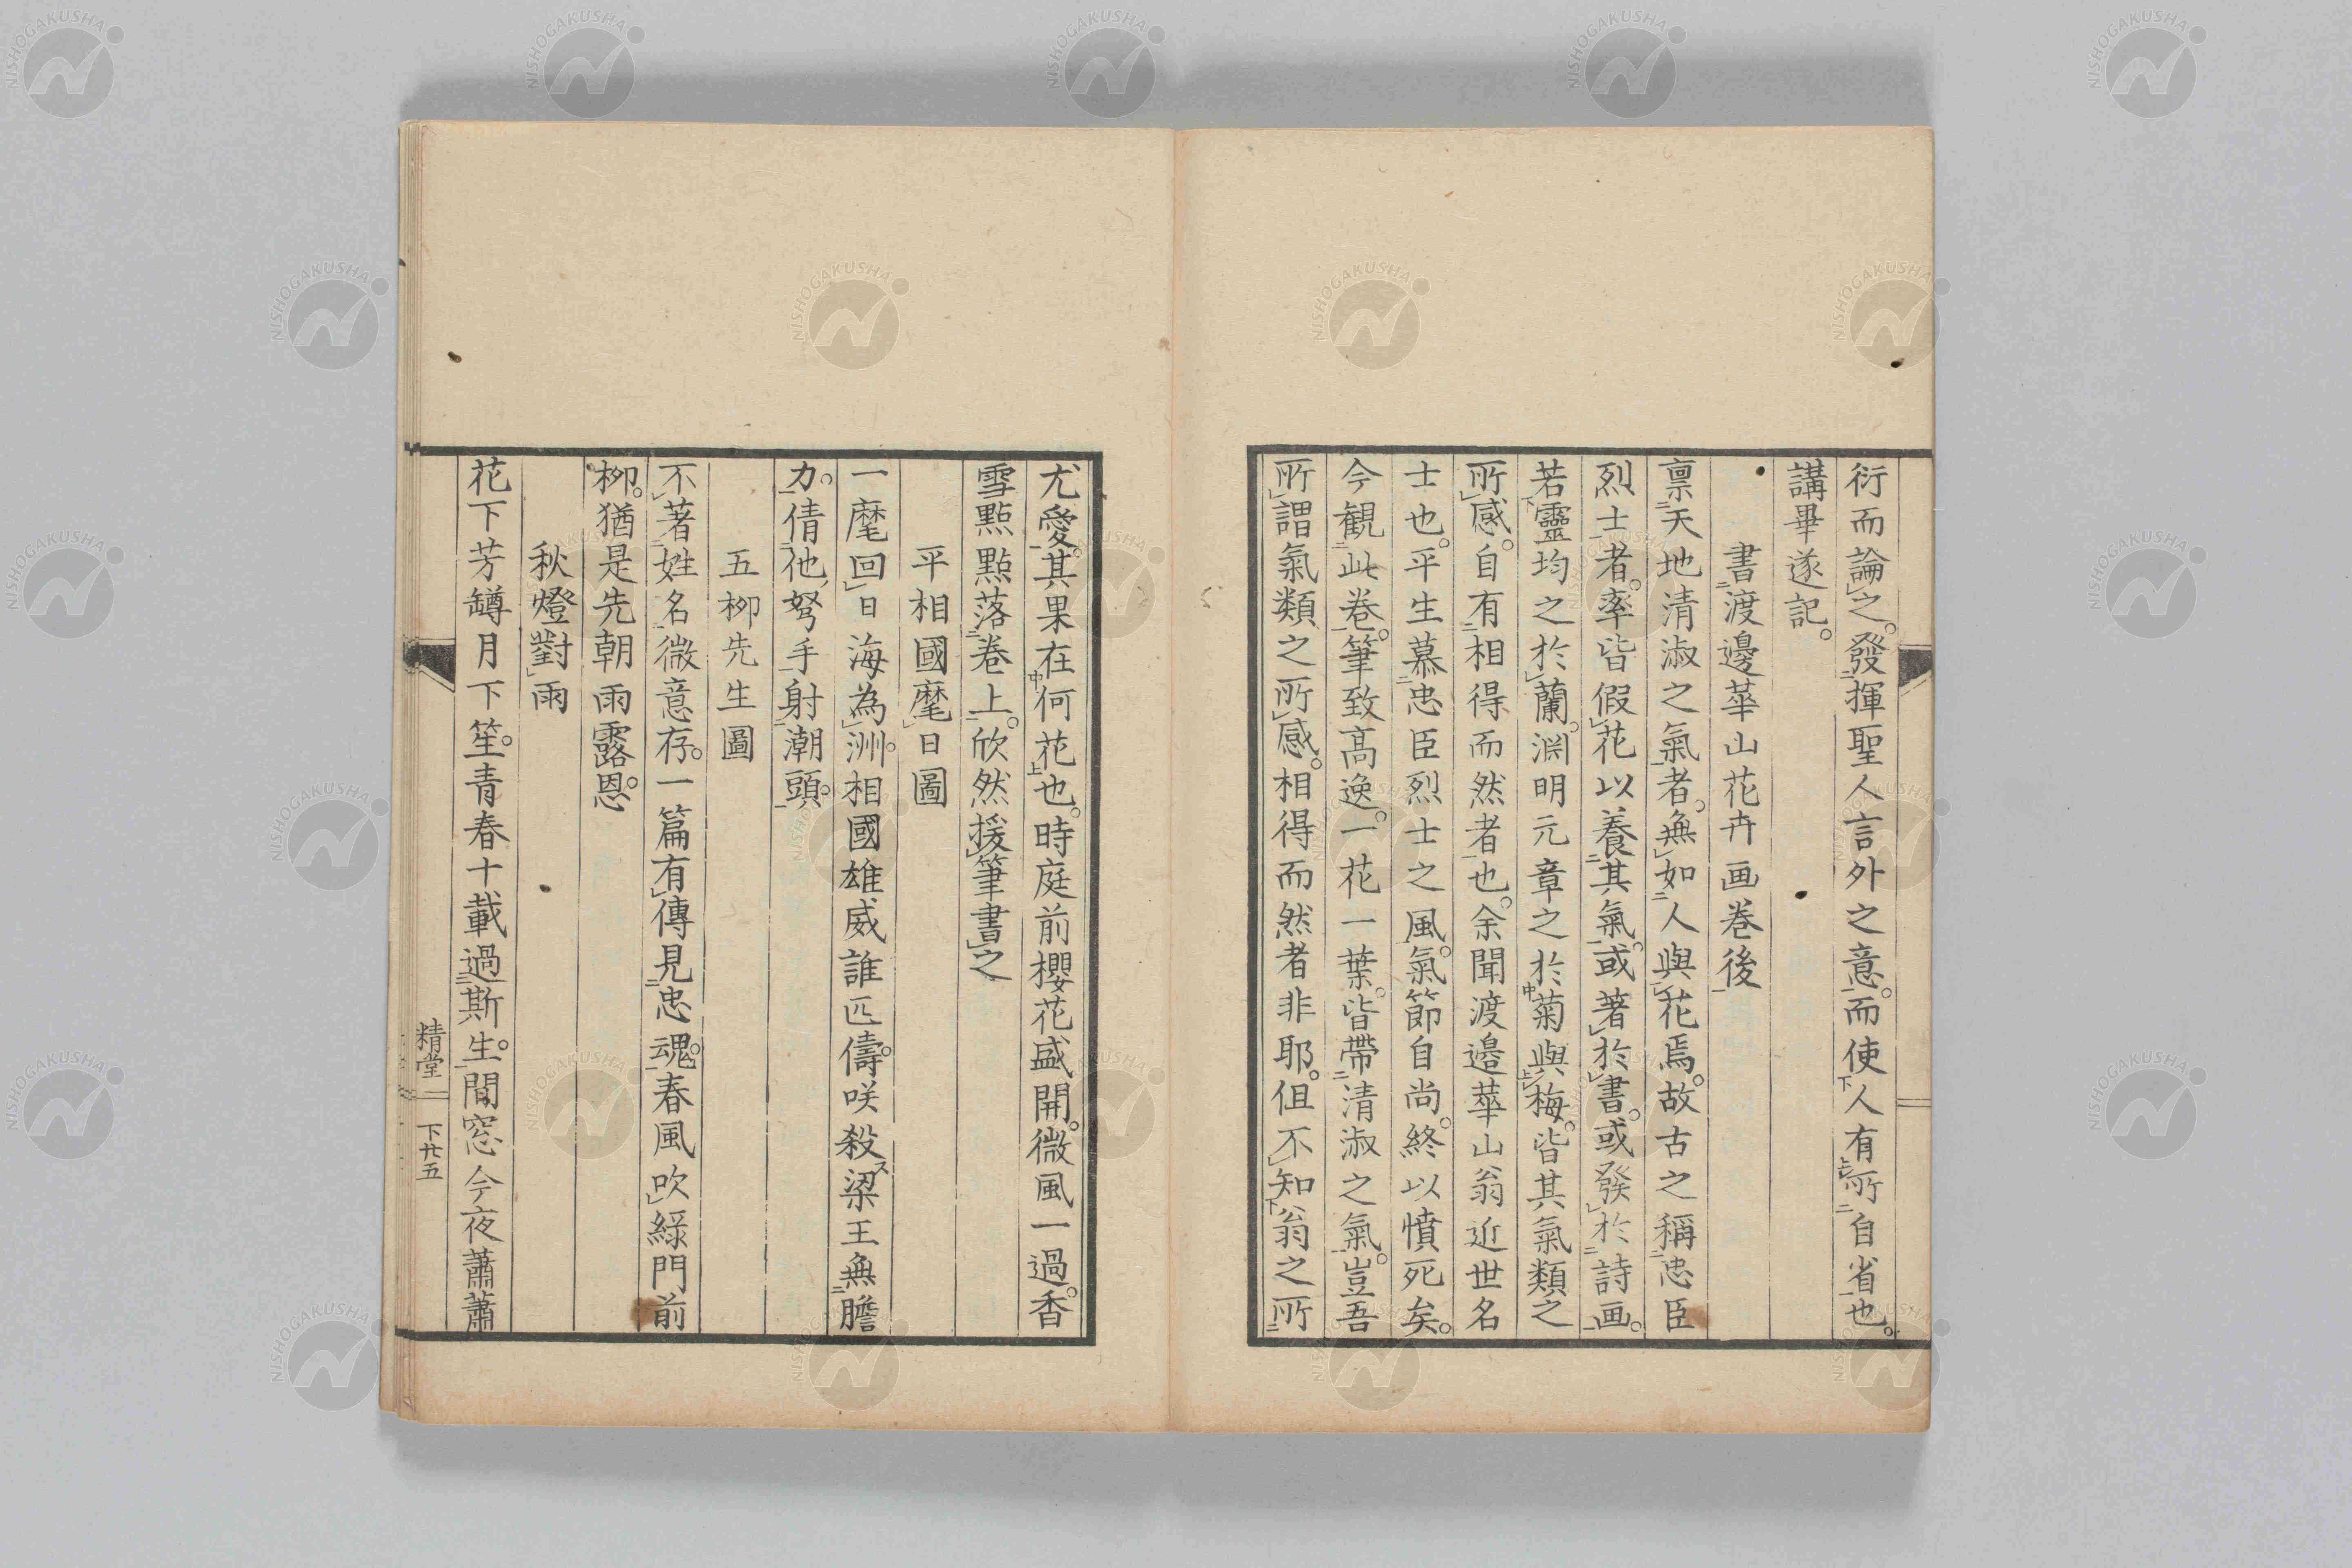 衍而論之。發揮聖人言外之意。而使人有所自省也。
講畢遂記。
書渡邊華山花卉画巻後
禀天地清淑之氣者。無如人與花焉。故古之稱忠臣
烈士者。率皆假花以養其氣。或著於書。或發於詩画。
若靈均之於蘭。渕明元章之於菊與梅。皆其氣類之
所感。自有相得而然者也。余聞渡邉華山翁近世名
士也。平生慕忠臣烈士之風。氣節自尚。終以憤死矣。
今観此巻。筆致高逸。一花一葉。皆帶清淑之氣。豈吾
所謂氣類之所感。相得而然者非耶。但不知翁之所
尤愛。其果在何花也。時庭前櫻花盛開。微風一過。香
雪點點落巻上。欣然援筆書之
平相國麾日圖
一麾回日海為洲。相國雄威誰匹儔。咲殺梁王無膽
力。倩他弩手射潮頭。
五柳先生圖
不著姓名微意存。一篇有傳見忠魂。春風吹緑門前
柳。猶是先朝雨露恩。
秋燈對雨
花下芳罇月下笙。青春十載過斯生。間窓今夜蕭蕭
精堂 下廿五
NISHOGAKUSHA